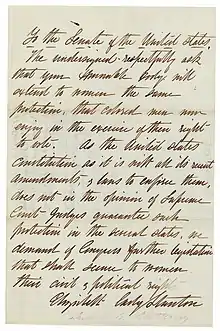 To the Senate of the United States
The undersigned respectfully ask
that your Honorable body will
extend to women the same
protection, that colored men now
enjoy in the exercise of their right
to vote. As the United States
constitution as it is with all its recent
amendments, & laws to enforce them,
does not in the opinion of Supreme
Court-Judges guarantee such
protection in the several states, we
demand of Congress further legislation
that shall secure to women
their civil & political rights
Elizabeth Cady Stanton